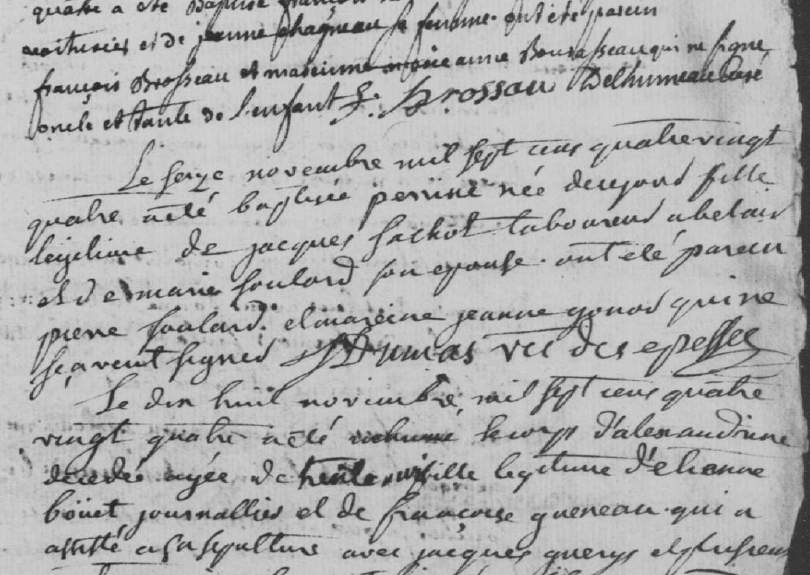 quatre a été Baptisé françois
voiturier et de jeanne chagneau sa femme. ont été parein
françois Brosseau et mareinne marie anne Bourasseau qui ne signe
oncle et tante de l'enfant f. Brossau Delhumeau Curé
Le seize novembre mil sept cens quatre vingt
quatre a été baptisée perrine née de ce jour fille
legitime de jacques sachot laboureur
et de marie soulard son epouse. ont été parein
pierre soulard. et mareine jeanne gonor qui ne
sçavent signer Dumas vre des epesses
Le dix huit novembre mil sept cens quatre
vingt quatre a été inhumé le corps d'alexandrine
décédée agée de trente fille legitime d'etienne
boüet journallier et de françoise gueneau qui a
assisté a sa sepulture avec jacques guerry et plusieurs